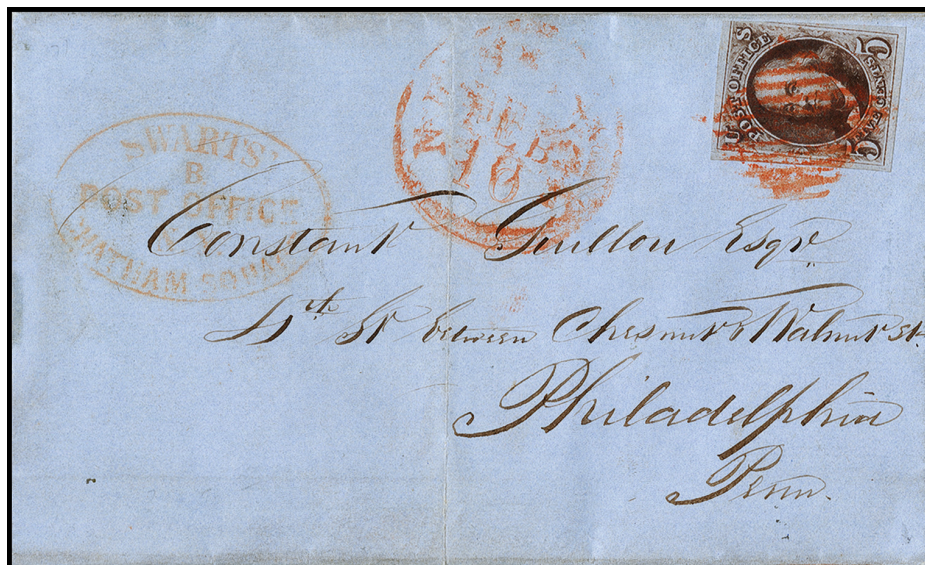 SWARTS'
B
POST OFFICE
CHATHAM SQUARE
FEB
10
U
POST OFFICE
FIVE CENTS
5
5
Constant Guillou Esqre
4th St between Chesnut & Walnut St.
Philadelphia
Penn.